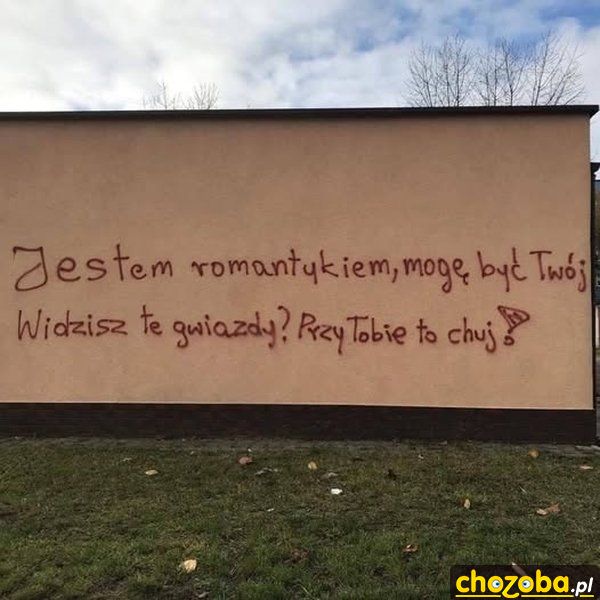 Jestem romantykiem, mogę być Twój
Widzisz te gwiazdy? Przy Tobie to chuj!
chozoba.pl